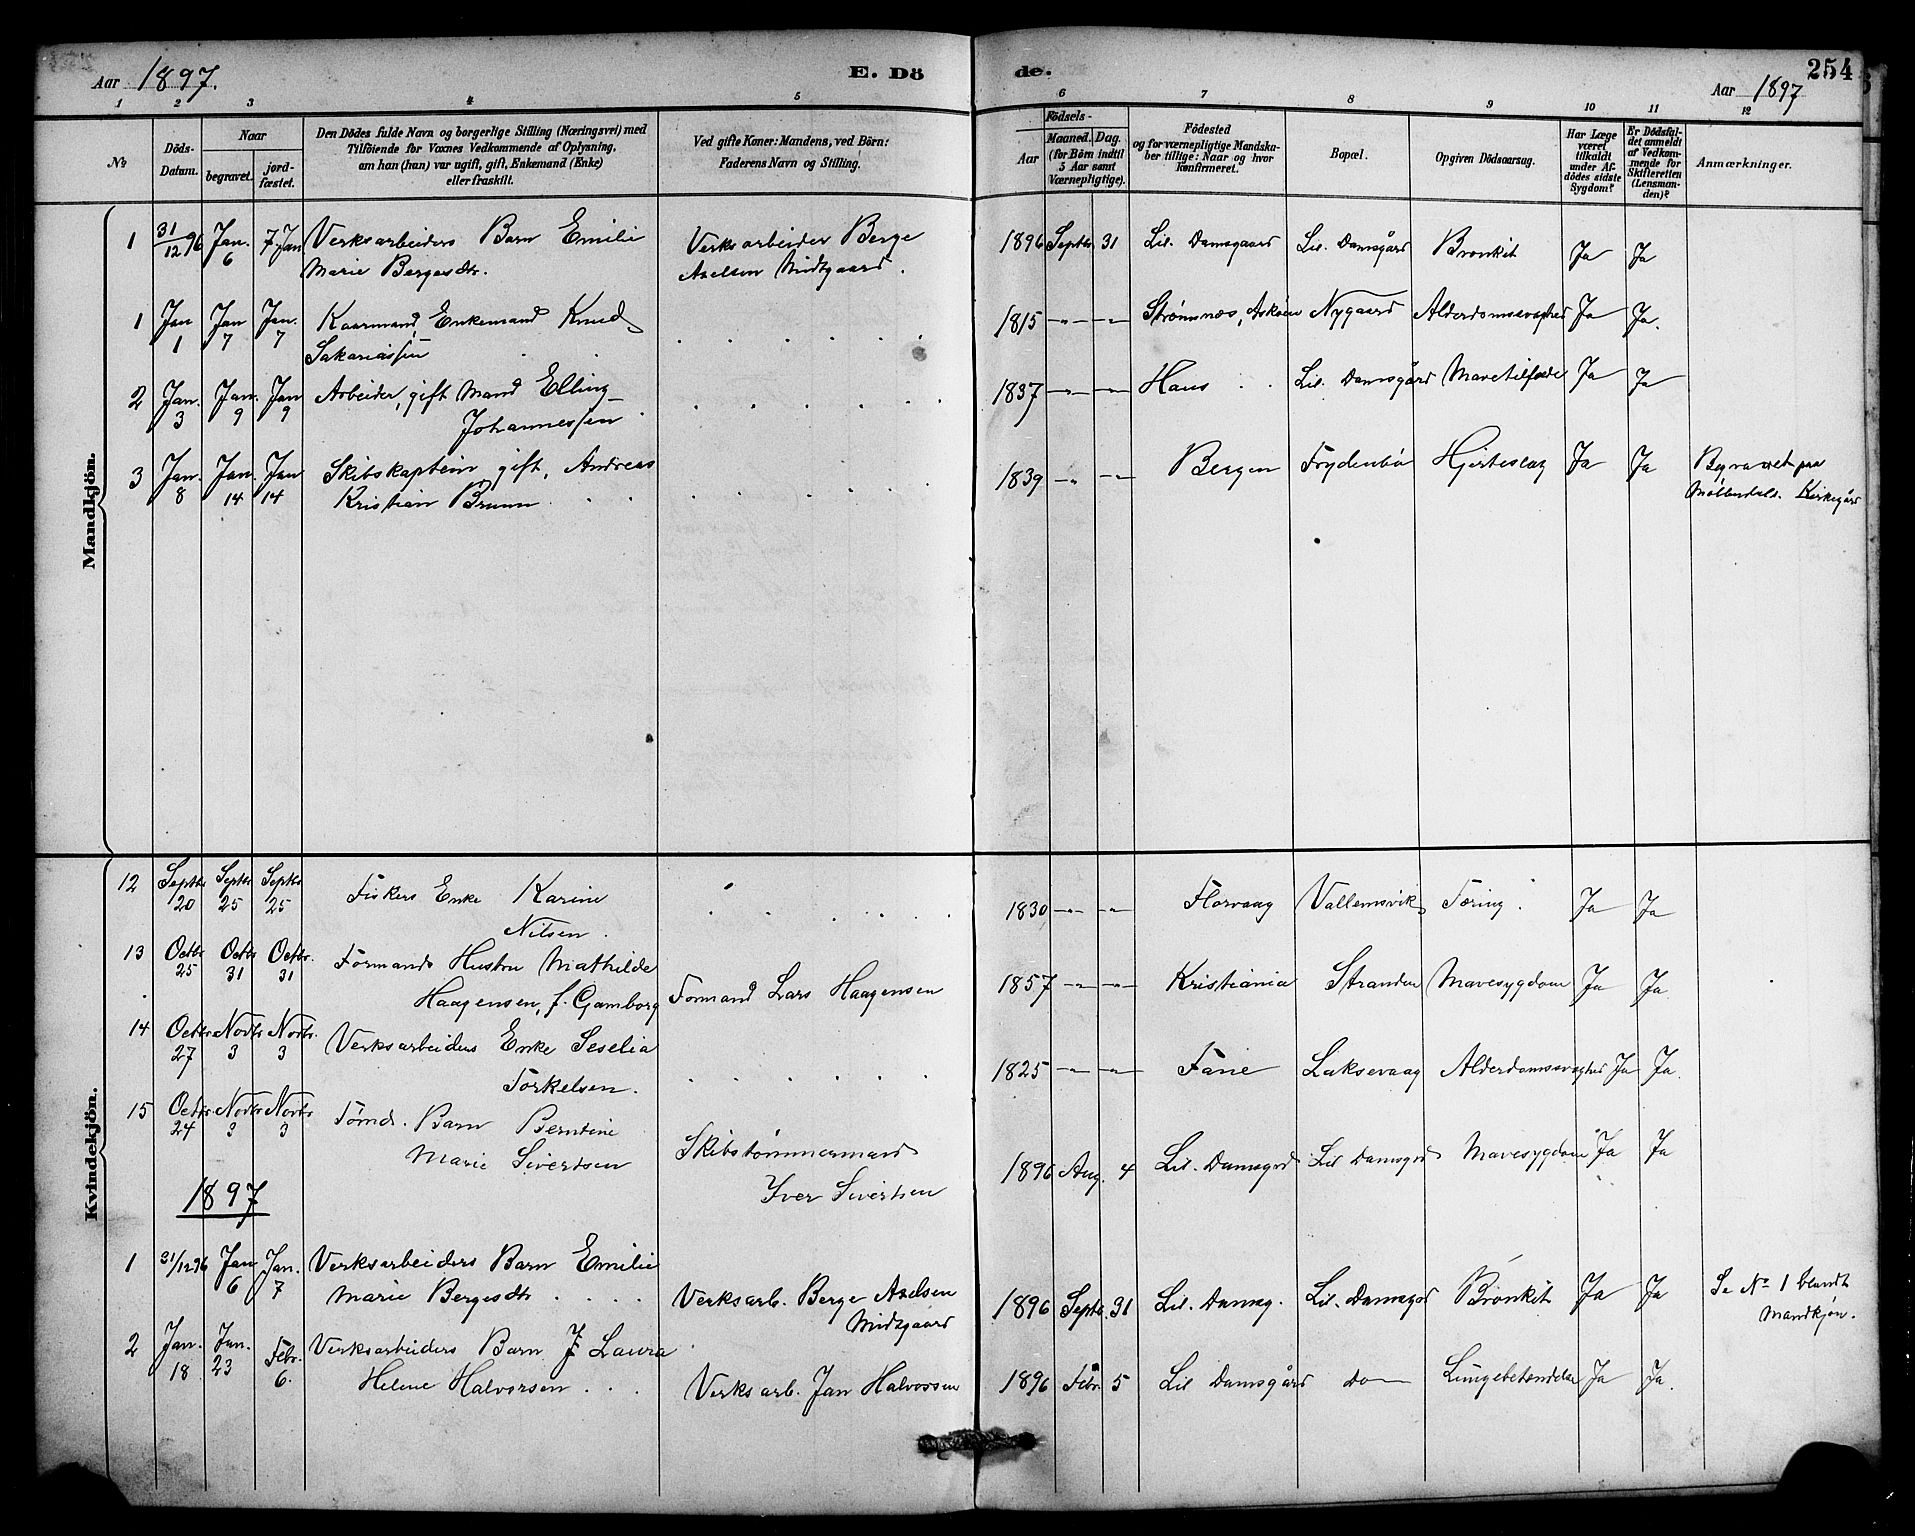 Aar 1897. E. Dö de. Aar 1897 254
1 2 3 4 5 6 7 8 9 10 11 12
No
Döds-
Datum.
Naar
begravet.
jord-
fæstet.
Den Dödes fulde Navn og borgerlige Stilling (Næringsvei) med
Tilföiende for Voxnes Vedkommende af Oplysning,
om han (hun) var ugift, gift, Enkemand (Enke)
eller fraskilt.
Ved gifte Koner: Mandens, ved Börn:
Faderens Navn og Stilling.
Födsels-
Aar
Maaned. Dag.
(for Börn indtil
5 Aar samt
Værnepligtige).
Födested
og for værnepligtige Mandska-
ber tillige: Naar og hvor
konfirmeret.
Bopæl.
Opgiven Dödsaarsag.
Har Læge
været
tilkaldt
under Af-
dödes sidste
Sygdom?
Er Dödsfal-
det anmeldt
af Vedkom-
mende for
Skifteretten
(Lensman-
den)?
Anmærkninger.
Mandkjön.
1 31/12 96 Jan. 6 7 Jan Verksarbeiders Barn Emilie
Marie Bergesdtr.
Verksarbeider Berge
Axelsen Midtgaard.
1896 Septbr 31 Lil. Damsgaard Lil. Damsgård Bronkit Ja Ja
1 Jan 1 Jan 7 Jan. 7 Kaarmand, Enkemand Knud
Sakariassen
1815 -"- -"- Strømsnes, Askøen Nygaard Alderdomssvaghed Ja Ja.
2 Jan. 3 Jan. 9 Jan 9 Arbeider, gift Mand Elling
Johannessen
1837 -"- -"- Haus Lil. Damsgård Mavetilfælde Ja Ja
3 Jan. 8 Jan 14 Jan 14 Skibskaptein, gift, Andreas
Kristian Bruun
1839 -"- -"- Bergen Frydenbø Hjerteslag Ja Ja Begravet paa
Møllendals Kirkegård
Kvindekjön.
12 Septbr 20 Septbr 25 Septbr 25 Fiskers Enke Karine
Nilsen.
1830 -"- -"- Florvaag Vallemsvik Tæring. Ja Ja
13 Octbr 25 Octbr 31 Octbr. 31 Formands Hustru Mathilde
Haagensen, f. Gamborg
Formand Lars Haagensen
1857 -"- -"- Kristiania Stranden Mavesygdom Ja Ja
14 Octbr 27 Novbr 3 Novbr. 3 Verksarbeiders Enke Seselia
Torkelsen.
1825 -"- -"- Fane Laksevaag Alderdomssvaghed Ja Ja.
15 Octbr. 24 Novbr 3 Novbr 3 Tømds. Barn Berntine
Marie Sivertsen
Skibstømmermand
Iver Sivertsen
1896 Aug. 4 Lil. Damsgrd Lil Damsgrd Mavesygdom Ja Ja
1897
1 31/12 96 Jan 6 Jan. 7 Verksarbeiders Barn Emilie
Marie Bergesdtr
Verksarb. Berge Axelsen
Midtgaard
1896 Septbr 31 Lil. Damsg. Lil. Damsgrd Bronkit Ja Ja Se No 1 blandt
Mandkjøn.
2 Jan. 18 Jan. 23 Febr. 6. Verksarbeiders Barn Laura
Helene Halvorsen
Verksarb. Jan Halvorsen
1896 Febr. 5 Lil Damsgård do Lungebetændelse Ja Ja.